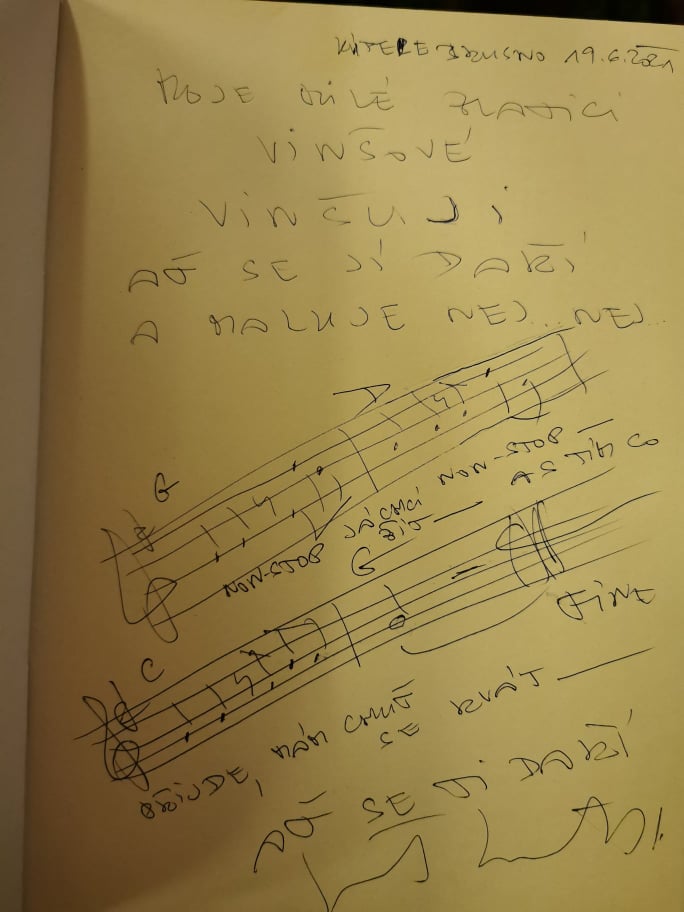 BRUSNO 19.6.2021
MOJE MILÉ ZLATICI
VINŠOVÉ
VINČUJI
AŤ SE JÍ DAŘÍ
A MALUJE NEJ...NEJ...
G D
NON-STOP JÁ CHCI NON-STOP —
ŽÍT — A S TÍM CO
G
C
FINE
PŘIJDE, MÁM CHUŤ
SE RVÁT —
AŤ SE JI DAŘÍ